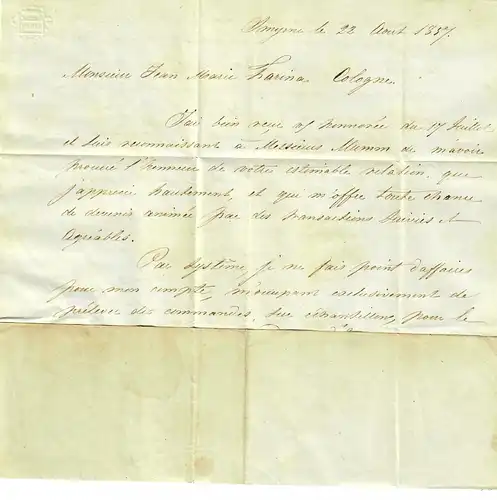 Smyrne le 22 Aout 1857.
Monsieur Jean Marie Farina. Cologne.
J'ai bien reçu vf honnorée du 17 Juillet
et suis reconnaissant à Messieurs Mumm de m'avoir
procuré l'honneur de votre estimable relation, que
j'apprecie hautement et qui m'offre toute chance
de devenir animée par des transactions suivies et
agréables.
Par système, je ne fais point d'affaires
pour mon compte, m'occupant exclusivement de
prélever des commandes, sur échantillons, pour le